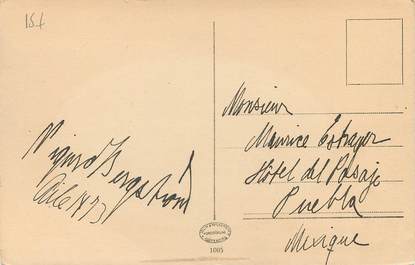 15t
Sigurd Bergström
Monsieur
Maurice Estrayer
Hôtel del Pasaje
Puebla
Mexique
1005